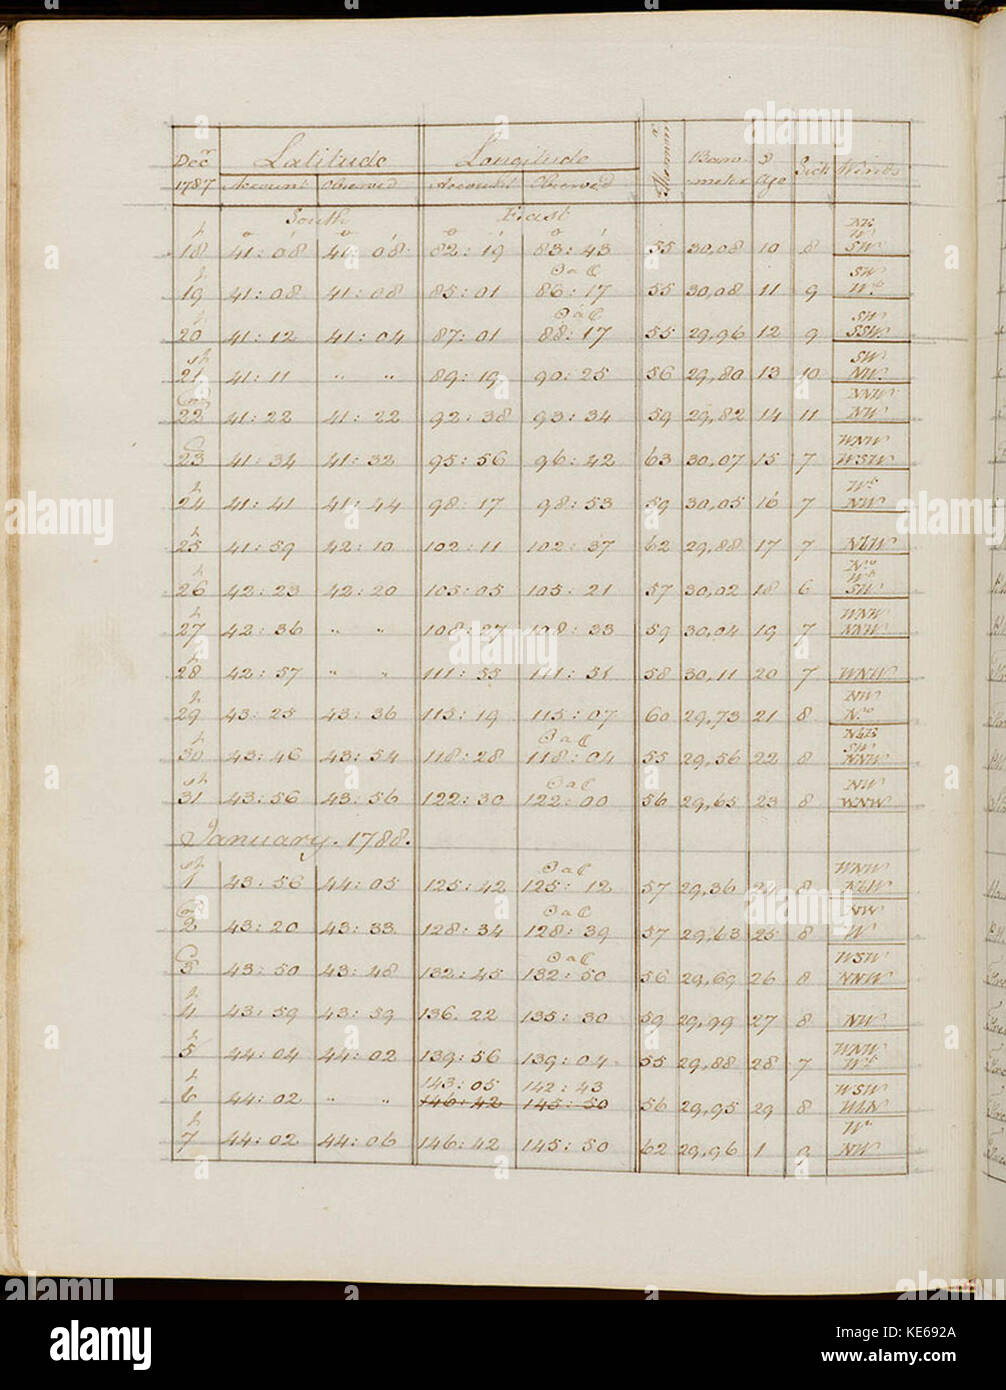 Decr Latitude Longitude Thermomr. Baro- meter ☽ Age Sick Winds
1787 Account Observed Account Observed
South East
18 41:08 41:08 82:19 83:43 55 30,08 10 8 W SW
☉ a ☾
19 41:08 41:08 85:01 86:17 55 30,08 11 9 SW
☉ a ☾
20 41:12 41:04 87:01 88:17 55 29,96 12 9 SW SSW
21 41:11 " " 89:19 90:25 56 29,80 13 10 SW NW
22 41:22 41:22 92:38 93:34 59 29,82 14 11 NNW NW
23 41:34 41:32 95:56 96:42 63 30,07 15 7 WNW WSW
24 41:41 41:44 98:17 98:53 59 30,05 16 7 NW
25 41:59 42:10 102:11 102:37 62 29,88 17 7 NbW
26 42:23 42:20 105:05 105:21 57 30,02 18 6 SW
27 42:36 " " 108:27 108:33 59 30,04 19 7 WNW NNW
28 42:57 " " 111:55 111:51 58 30,11 20 7 WNW
29 43:25 43:36 115:19 115:07 60 29,73 21 8 NW No
☉ a ☾
30 43:46 43:54 118:28 118:04 55 29,56 22 8 NbE SW NNW
☉ a ☾
31 43:56 43:56 122:30 122:00 56 29,65 23 8 NW WNW
January. 1788.
☉ a ☾
1 43:56 44:05 125:42 125:12 57 29,36 24 8 WNW NbW
☉ a ☾
2 43:20 43:33 128:34 128:39 57 29,63 25 8 NW W
☉ a ☾
3 43:50 43:48 132:45 132:50 56 29,69 26 8 WSW NNW
4 43:59 43:59 136.22 135:30 59 29,99 27 8 NW
5 44:04 44:02 139:56 139:04 55 29,88 28 7 WNW
143:05 142:43
6 44:02 " " 146:42 145:50 56 29,95 29 8 WSW
7 44:02 44:06 146:42 145:50 62 29,96 1 9 NW
alamy
alamy stock photo
KE692A
www.alamy.com